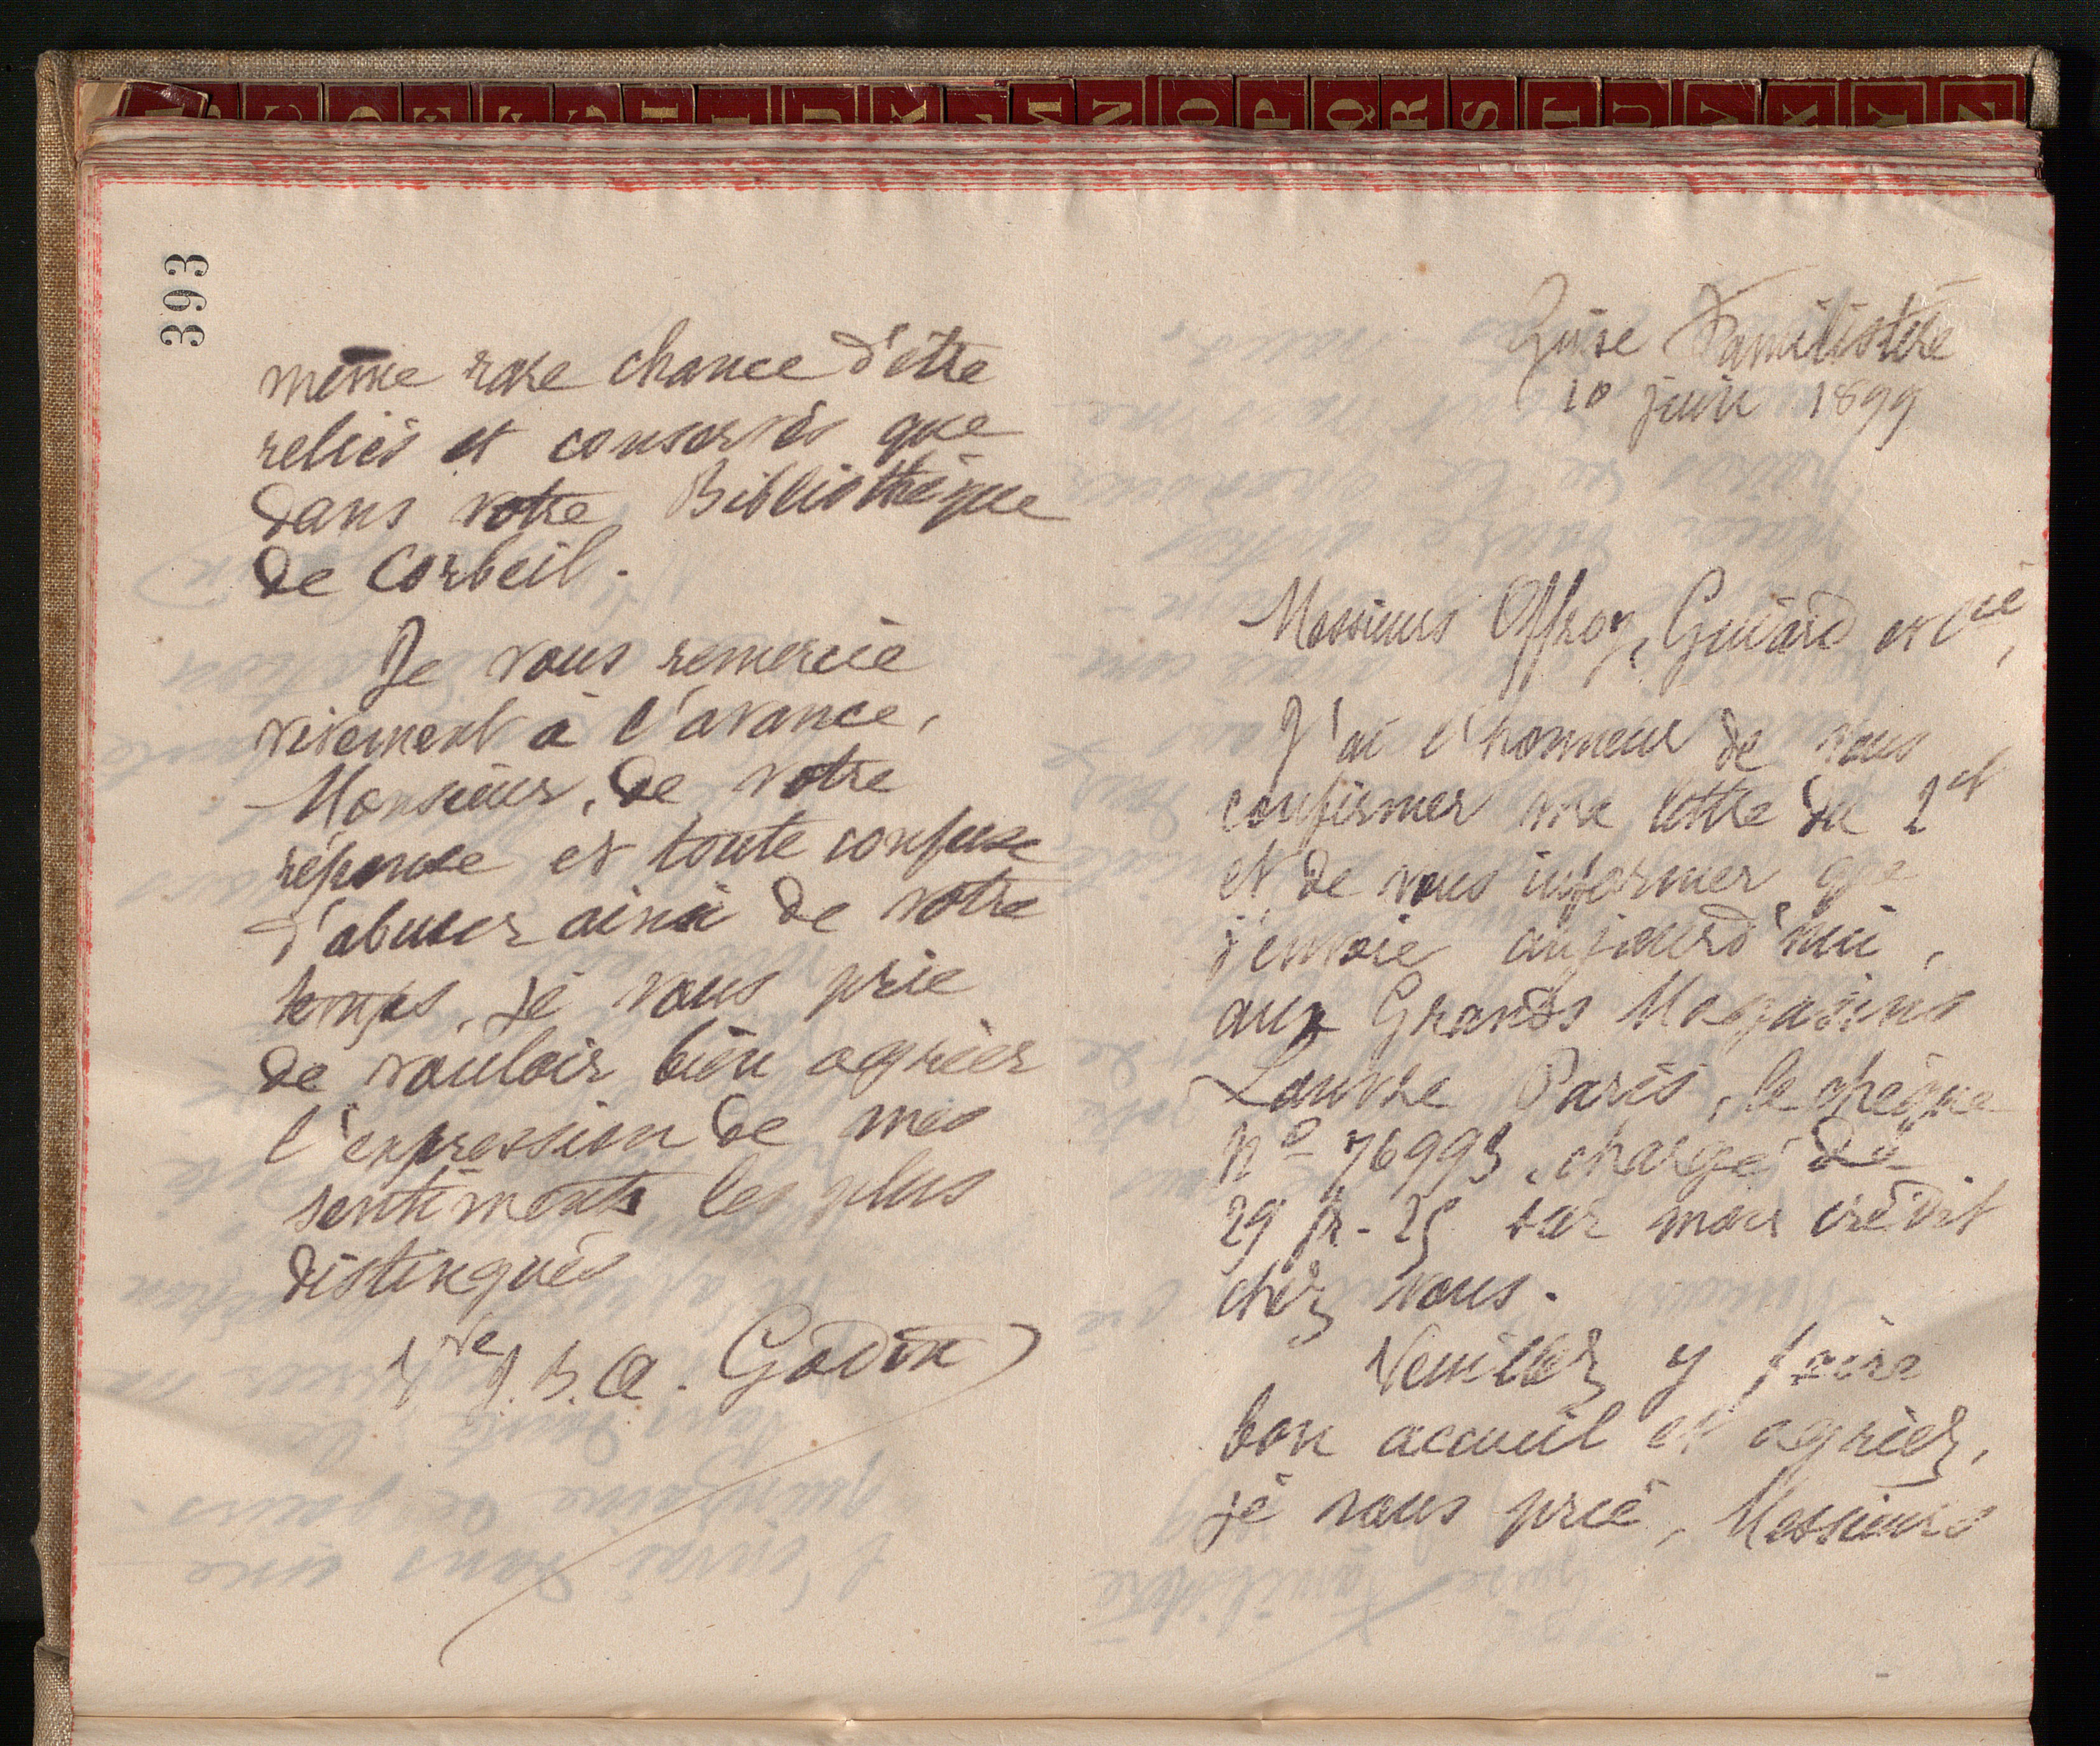 A B C D E F G H I J K L M N O P Q R S T U V X Y Z
393
même rare chance d'être
reliés et conservés que
dans votre Bibliothèque
de Corbeil.
Je vous remercie
vivement à l'avance,
Monsieur, de votre
réponse et toute confuse
d'abuser ainsi de votre
temps, je vous prie
de vouloir bien agréer
l'expression de mes
sentiments les plus
distingués
Vve J. B. A. Godin
Guise Familistère
10 juin 1899
Messieurs Offroy, Guiard et Cie,
J'ai l'honneur de vous
confirmer ma lettre du 2 ct
et de vous informer que
j'envoie aujourd'hui,
aux Grands Magasins
Louvre Paris, le chèque
No 76993, chargé de
29 fr. 25 sur mon crédit
chez vous.
Veuillez y faire
bon accueil et agréez,
je vous prie, Messieurs